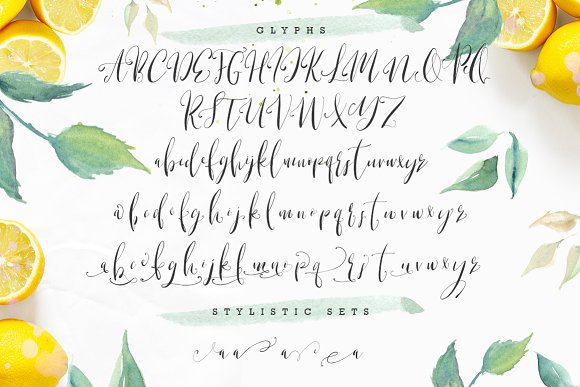 GLYPHS
ABCDEFGHIJKLMNOPQ
RSTUVWXYZ
abcdefghijklmnopqrstuvwxyz
abcdefghijklmnopqrstuvwxyz
abcdefghijklmnopqrstuvwxyz
STYLISTIC SETS